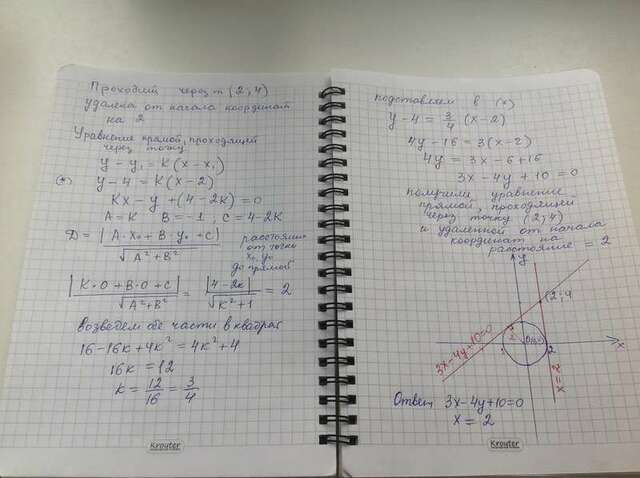 Проходит через т (2; 4)
удалена от начала координат
на 2
Уравнение прямой, проходящей
через точку
y - y₁ = K(x - x₁)
(*) y - 4 = K(x - 2)
Kx - y + (4 - 2K) = 0
A = K B = -1; C = 4 - 2K
D = |A·x₀ + B·y₀ + C| / √(A² + B²)
расстояние
от точки
x₀, y₀
до прямой
|K·0 + B·0 + C| / √(A² + B²) = |4 - 2K| / √(K² + 1) = 2
возведем обе части в квадрат
16 - 16K + 4K² = 4K² + 4
16K = 12
K = 12/16 = 3/4
Kroyter
подставляем в (*)
y - 4 = 3/4 (x - 2)
4y - 16 = 3(x - 2)
4y = 3x - 6 + 16
3x - 4y + 10 = 0
получили уравнение
прямой, проходящей
через точку (2; 4)
и удаленной от начала
координат на
расстояние = 2
y
(2; 4
3x - 4y + 10 = 0
2
2
x
x = 2
Ответ, 3x - 4y + 10 = 0
x = 2
Kroyter